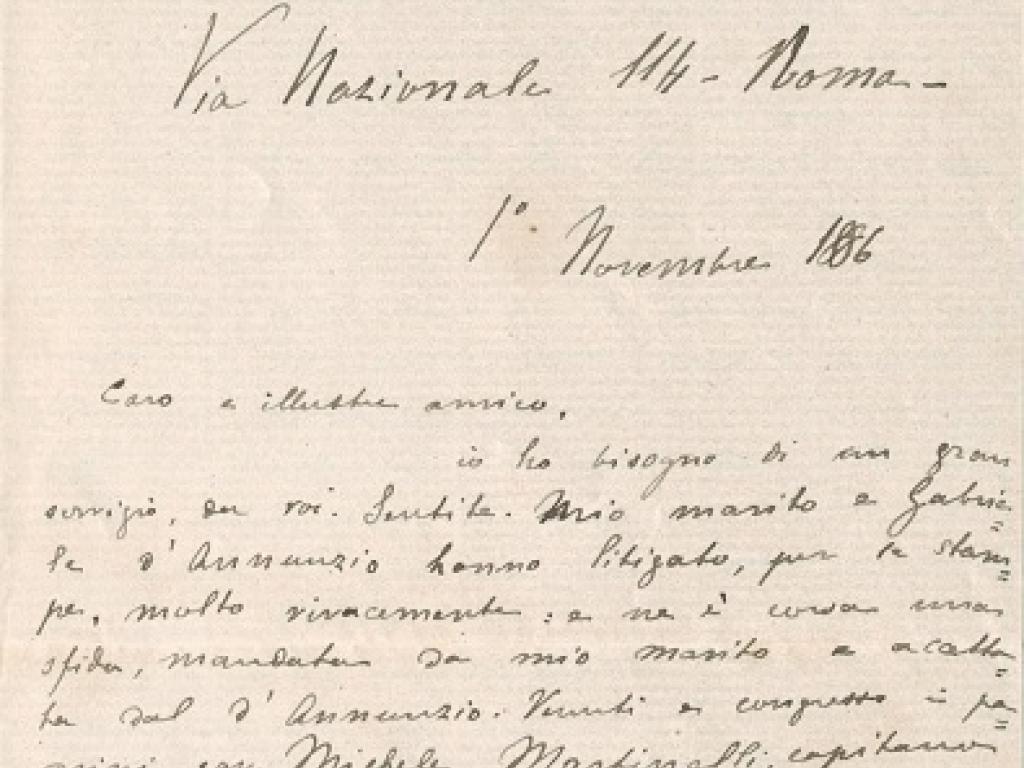 Via Nazionale 114 - Roma -
1° Novembre 1886
Caro e illustre amico,
io ho bisogno di un gran
servizio, da voi. Sentite. Mio marito e Gabrie=
le d'Annunzio hanno litigato, per la stam=
pa, molto vivacemente: e ne è corsa una
sfida, mandata da mio marito e accetta=
ta dal d'Annunzio. Venuti a congresso i pa=
drini con Michele Martinelli, capitano